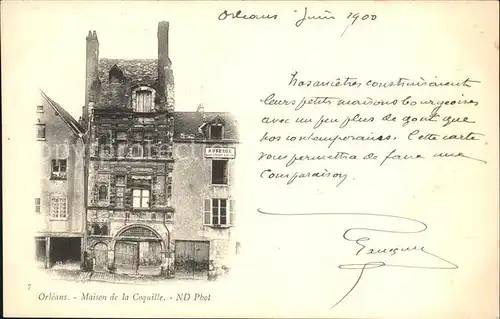 Orléans juin 1900
Nos ancêtres construisaient
leurs petits maisons bourgeoises
avec un peu plus de goût que
nos contemporains. Cette carte
vous permettra de faire une
Comparaison
AUBERGE
7
Orléans. - Maison de la Coquille. - ND Phot